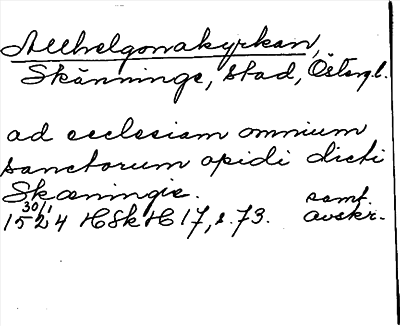 Allhelgonakyrkan,
Skänninge, stad, Östergl.
ad ecclesiam omnium
sanctorum opidi dicti
Skæningie. samt.
1524 30/1 HSkH 17, s. 73. avskr.